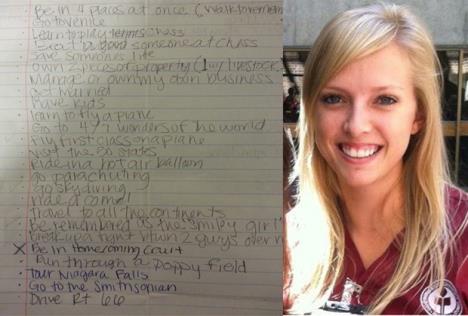 Be in 4 places at once (Walk to remember
Go to Venice
Learn to play tennis chess
Beat someone at chess
Save someones life
Own a piece of property (1 w/ livestock
Manage or own my own business
Get married
Have kids
Learn to fly a plane
Go to 4/7 wonders of the world
Fly first class on a plane
Visit the 50 states
Ride in a hot air balloon
Go parachuting
Go skydiving
Ride a camel
Travel to all the continents
Be remembered as "the smiley girl"
Break up a fight b/wn 2 guys over m
X Be in Homecoming Court
Run through a poppy field
• Tour Niagara Falls
• Go to the Smithsonian
Drive Rt 66